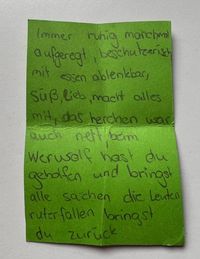 Immer ruhig manchmal
aufgeregt, beschützerisch
mit essen ablenkbar,
süß, lieb, macht alles
mit, das herchen war
auch nett, beim
Werwolf hast du
geholfen und bringst
alle sachen die Leuten
runterfallen bringst
du zurück